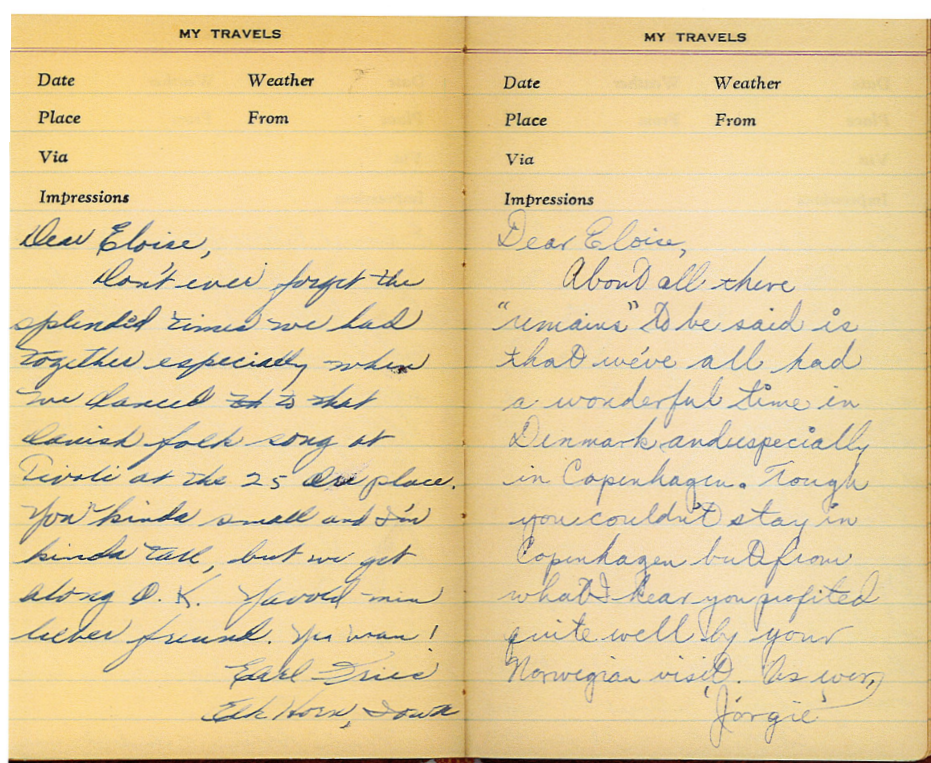 MY TRAVELS
Date Weather
Place From
Via
Impressions
Dear Eloise,
Don't ever forget the
splendid times we had
together especially when
we danced to that
danish folk song at
Tivoli at the 25 Öre place.
You kinda small and I'm
kinda tall, but we get
along O.K. Yavold mein
lieber freund. Yes man!
Earl
Elk Horn, Iowa
MY TRAVELS
Date Weather
Place From
Via
Impressions
Dear Eloise,
About all there
"remains" to be said is
that we've all had
a wonderful time in
Denmark and especially
in Copenhagen. Tough
you couldn't stay in
Copenhagen but from
what I hear you profited
quite well by your
Norwegian visit. As ever,
'Jorgie'